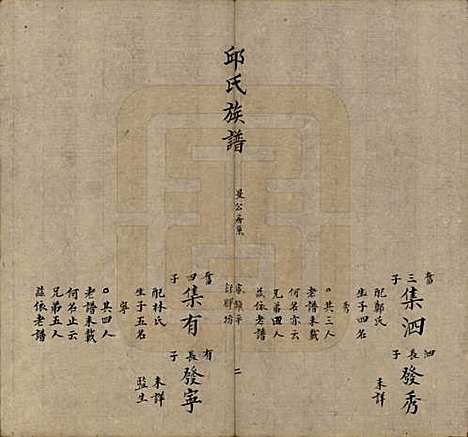 邱氏族譜
舊
三子
集泗
配鄭氏
生子四名
秀
其三人
老譜未載
何名亦云
兄弟四人
茲依老譜
泗
長子
發秀
未詳
二
舊
四子
集有
配林氏
生子五名
寧
其四人
老譜未載
何名止云
兄弟五人
茲依老譜
有
長子
發寧
未詳
監生